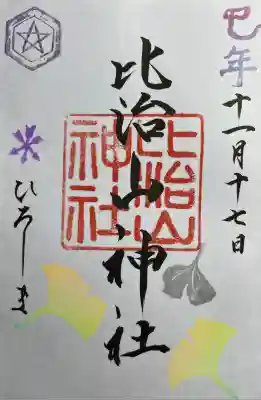 巳年
十一月十七日
比治山神社
比治山
神社
ひろしま